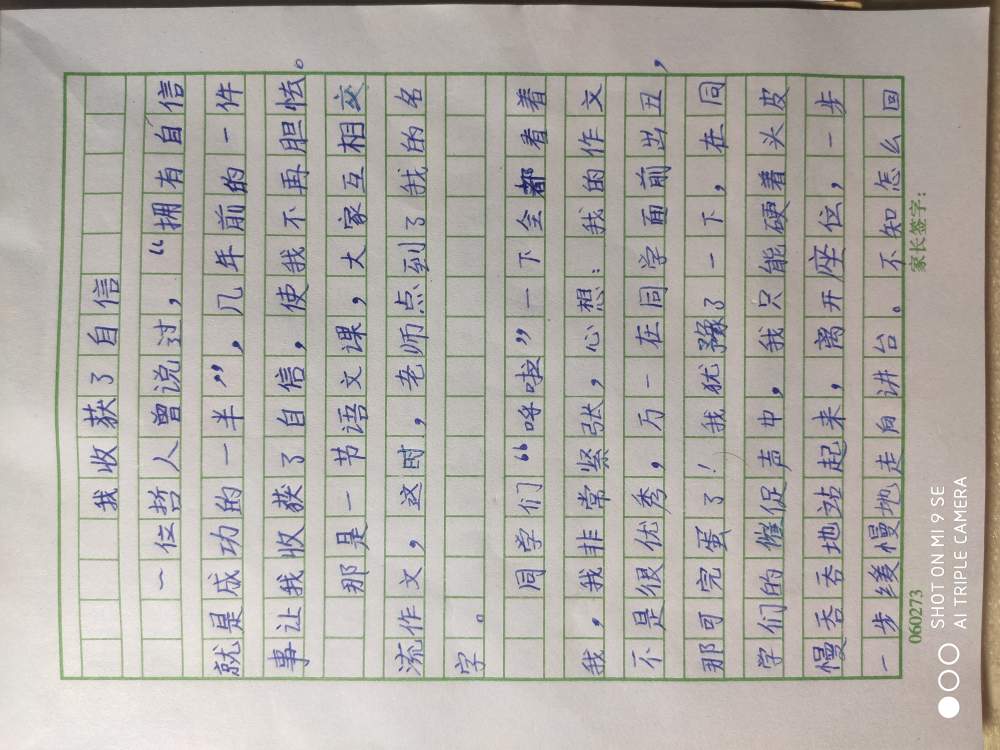 我收获了自信
一位哲人曾说过，“拥有自信
就是成功的一半”，几年前的一件
事让我收获了自信，使我不再胆怯。
那是一节语文课，大家互相交
流作文，这时，老师点到了我的名
字。
同学们“呼啦”一下全都看着
我，我非常紧张，心想：我的作文
不是很优秀，万一在同学面前出丑，
那可完蛋了！我犹豫了一下，在同
学们的催促声中，我只能硬着头皮
慢吞吞地站起来，离开座位，一步
一步缓慢地走向讲台。不知怎么回
060273
家长签字：
SHOT ON MI 9 SE
AI TRIPLE CAMERA